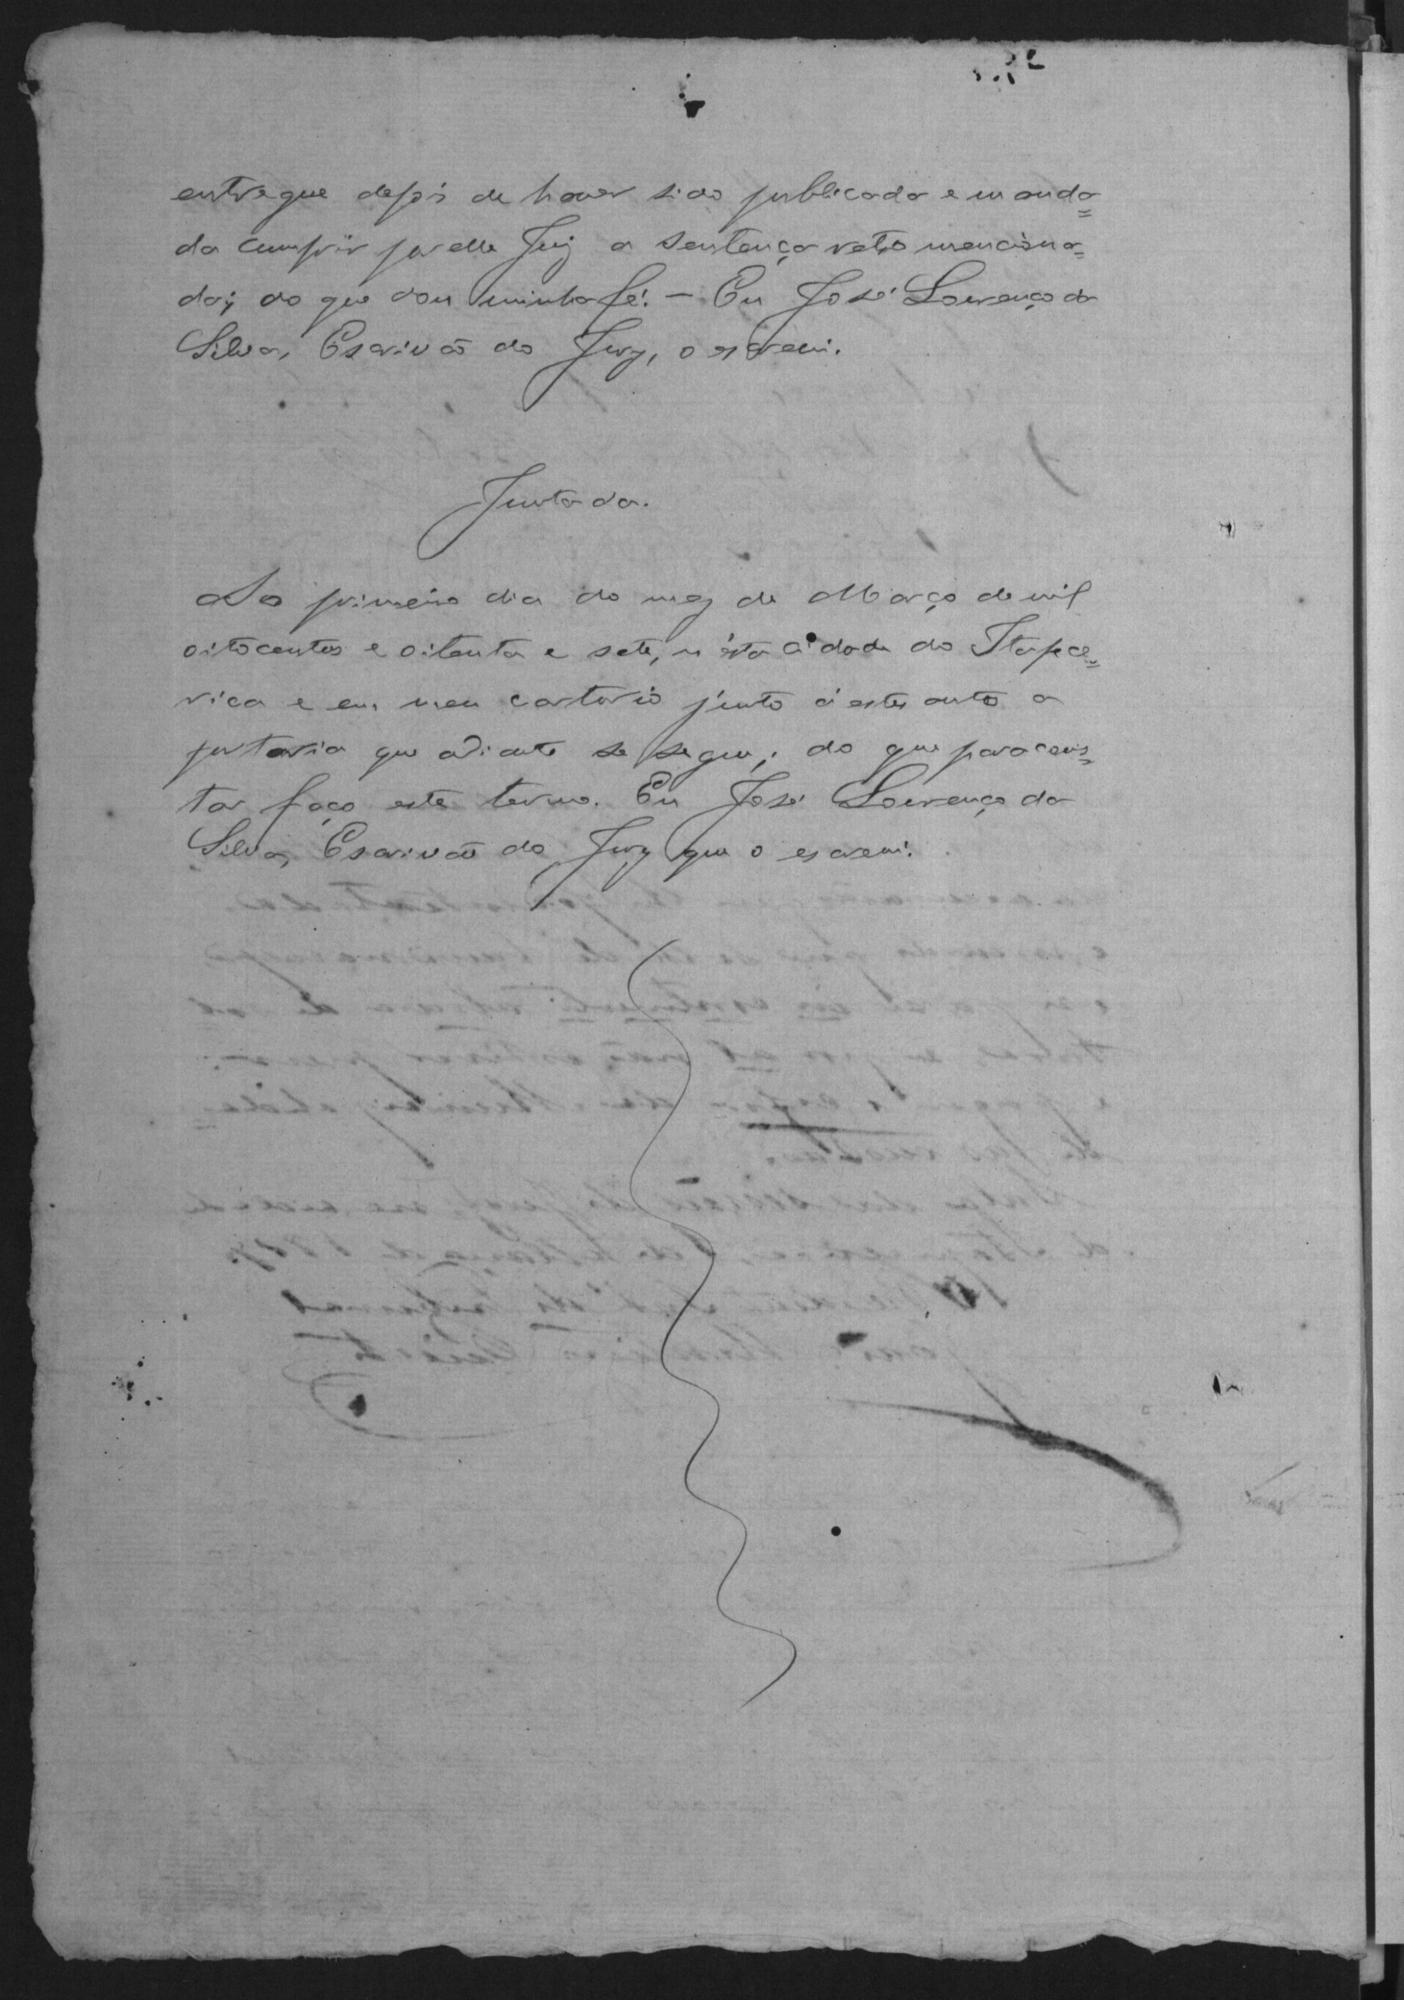 entregue depois de haver sido publicada e manda=
da cumprir por elle Juiz a sentença retro menciona=
da; do que dou minha fé. — Eu José Lourenço da
Silva, Escrivão do Jury, o escrevi.
Juntada.
Ao primeiro dia do mez de Março de mil
oitocentos e oitenta e sete, n'esta cidade do Itapece=
rica e em meu cartorio junto á estes autos a
portaria que adiante se segue; do que para cons=
tar faço este termo. Eu José Lourenço da
Silva, Escrivão do Jury que o escrevi.